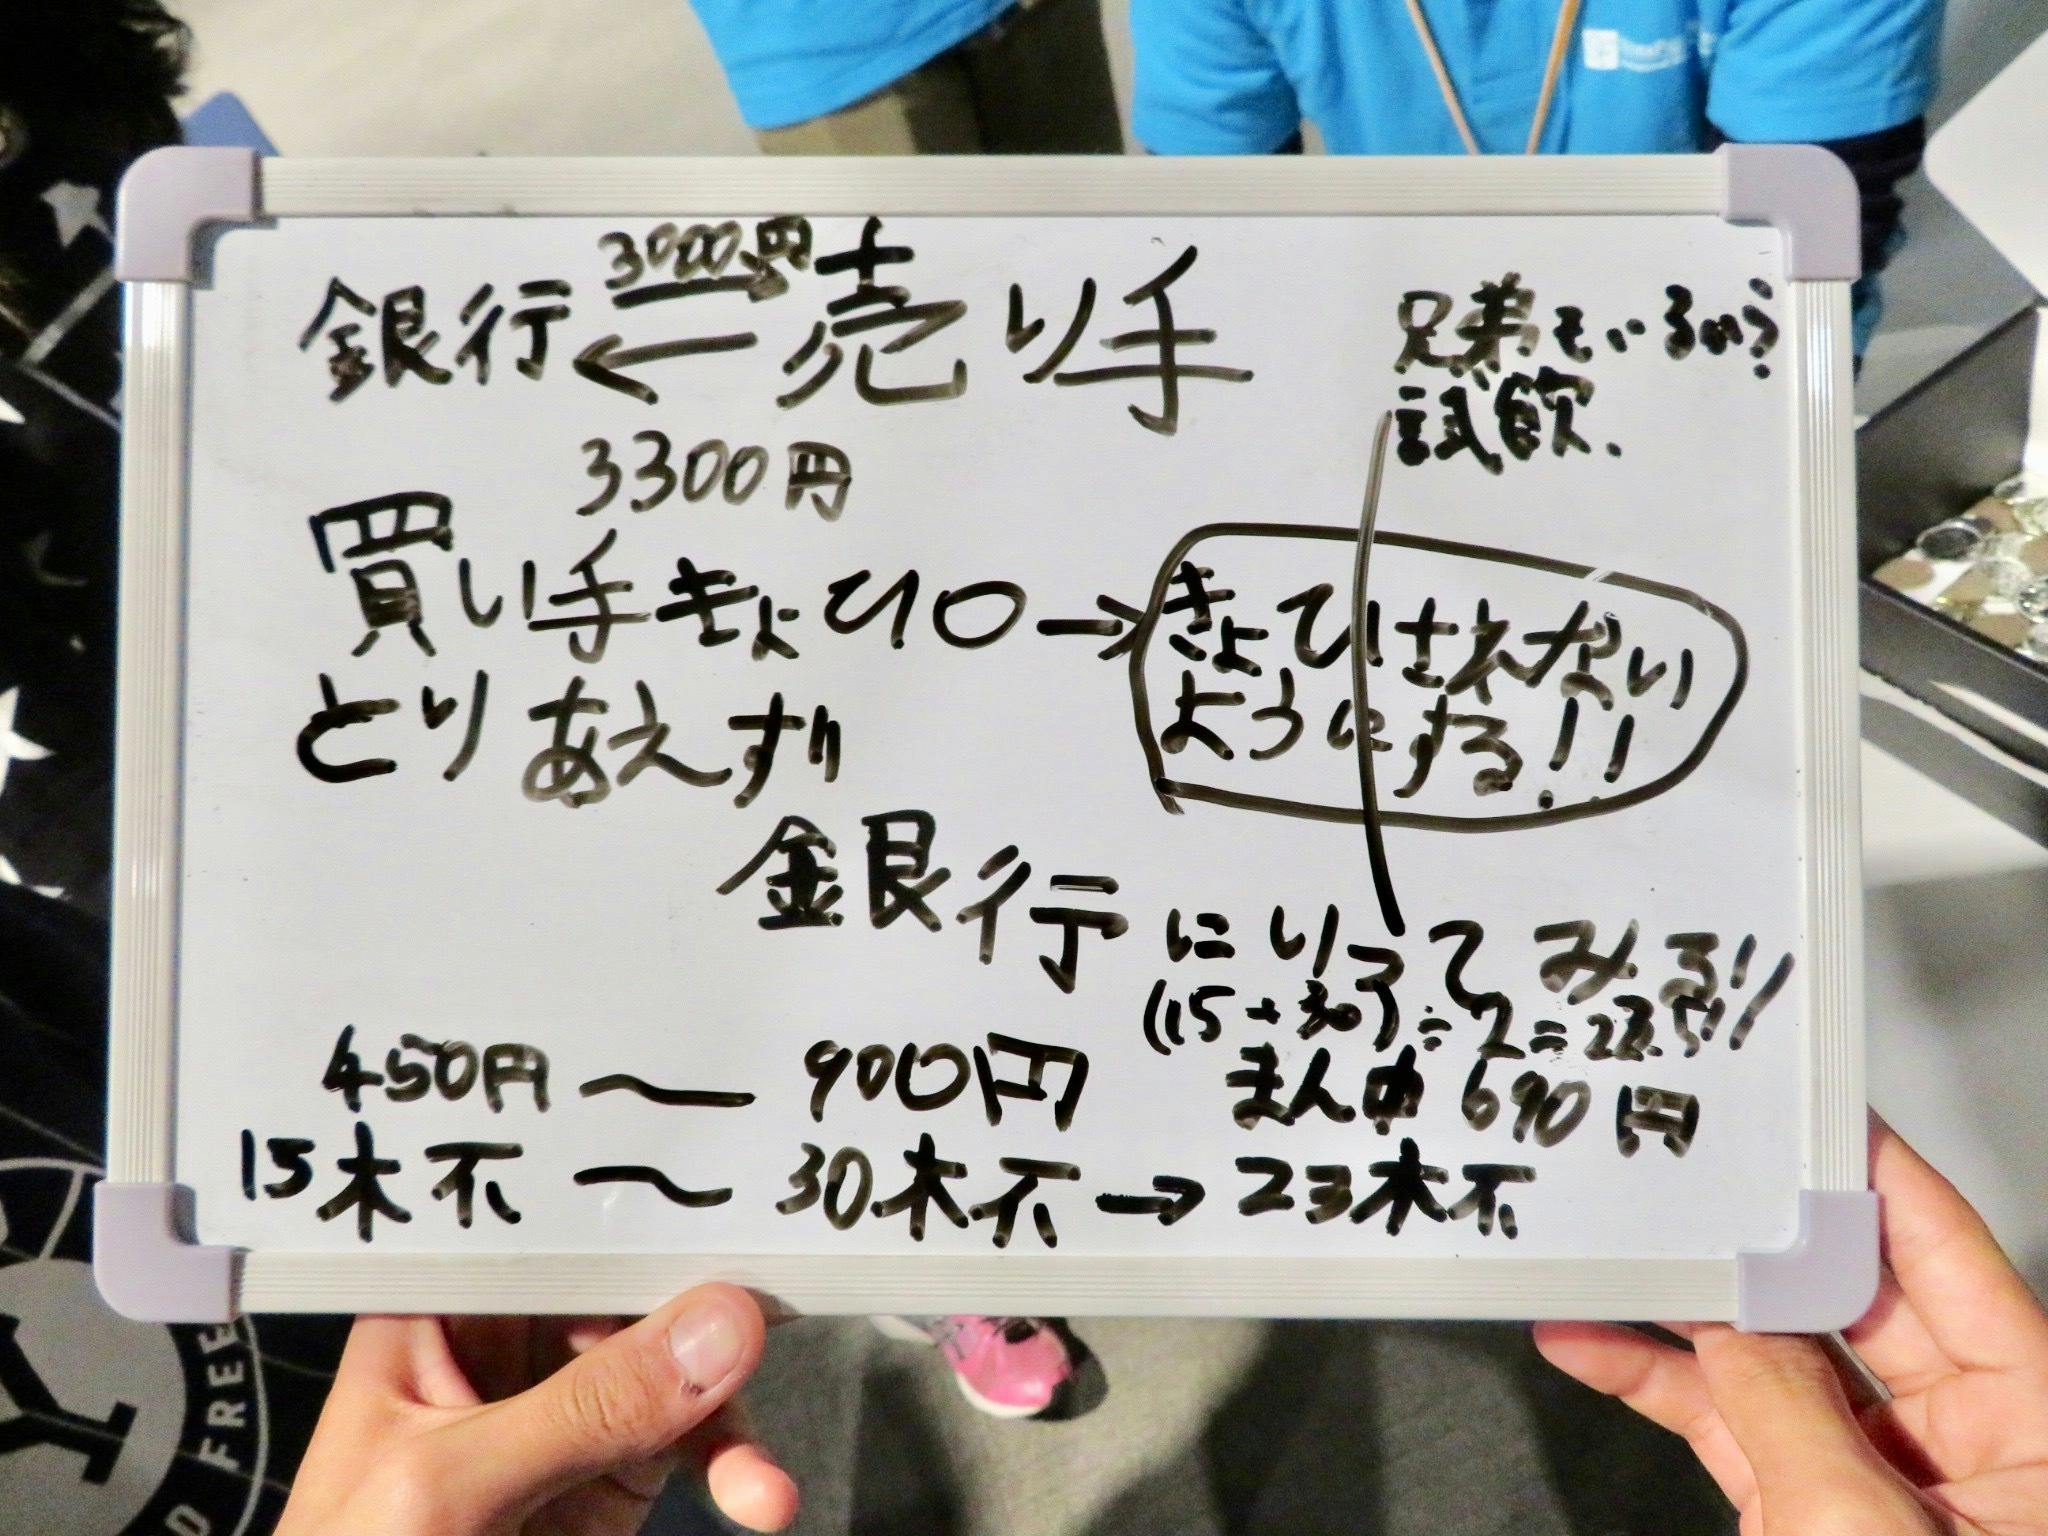 3000円
銀行 → ← 売り手
3300円
兄弟もいるから
試飲.
買い手きょひ〇→きょひされない
ようにする!!
とりあえず
銀行にいってみる!!
(15+30)÷2=22.5!!
450円〜900円
まん中690円
15杯〜30杯→23杯
FREE
D